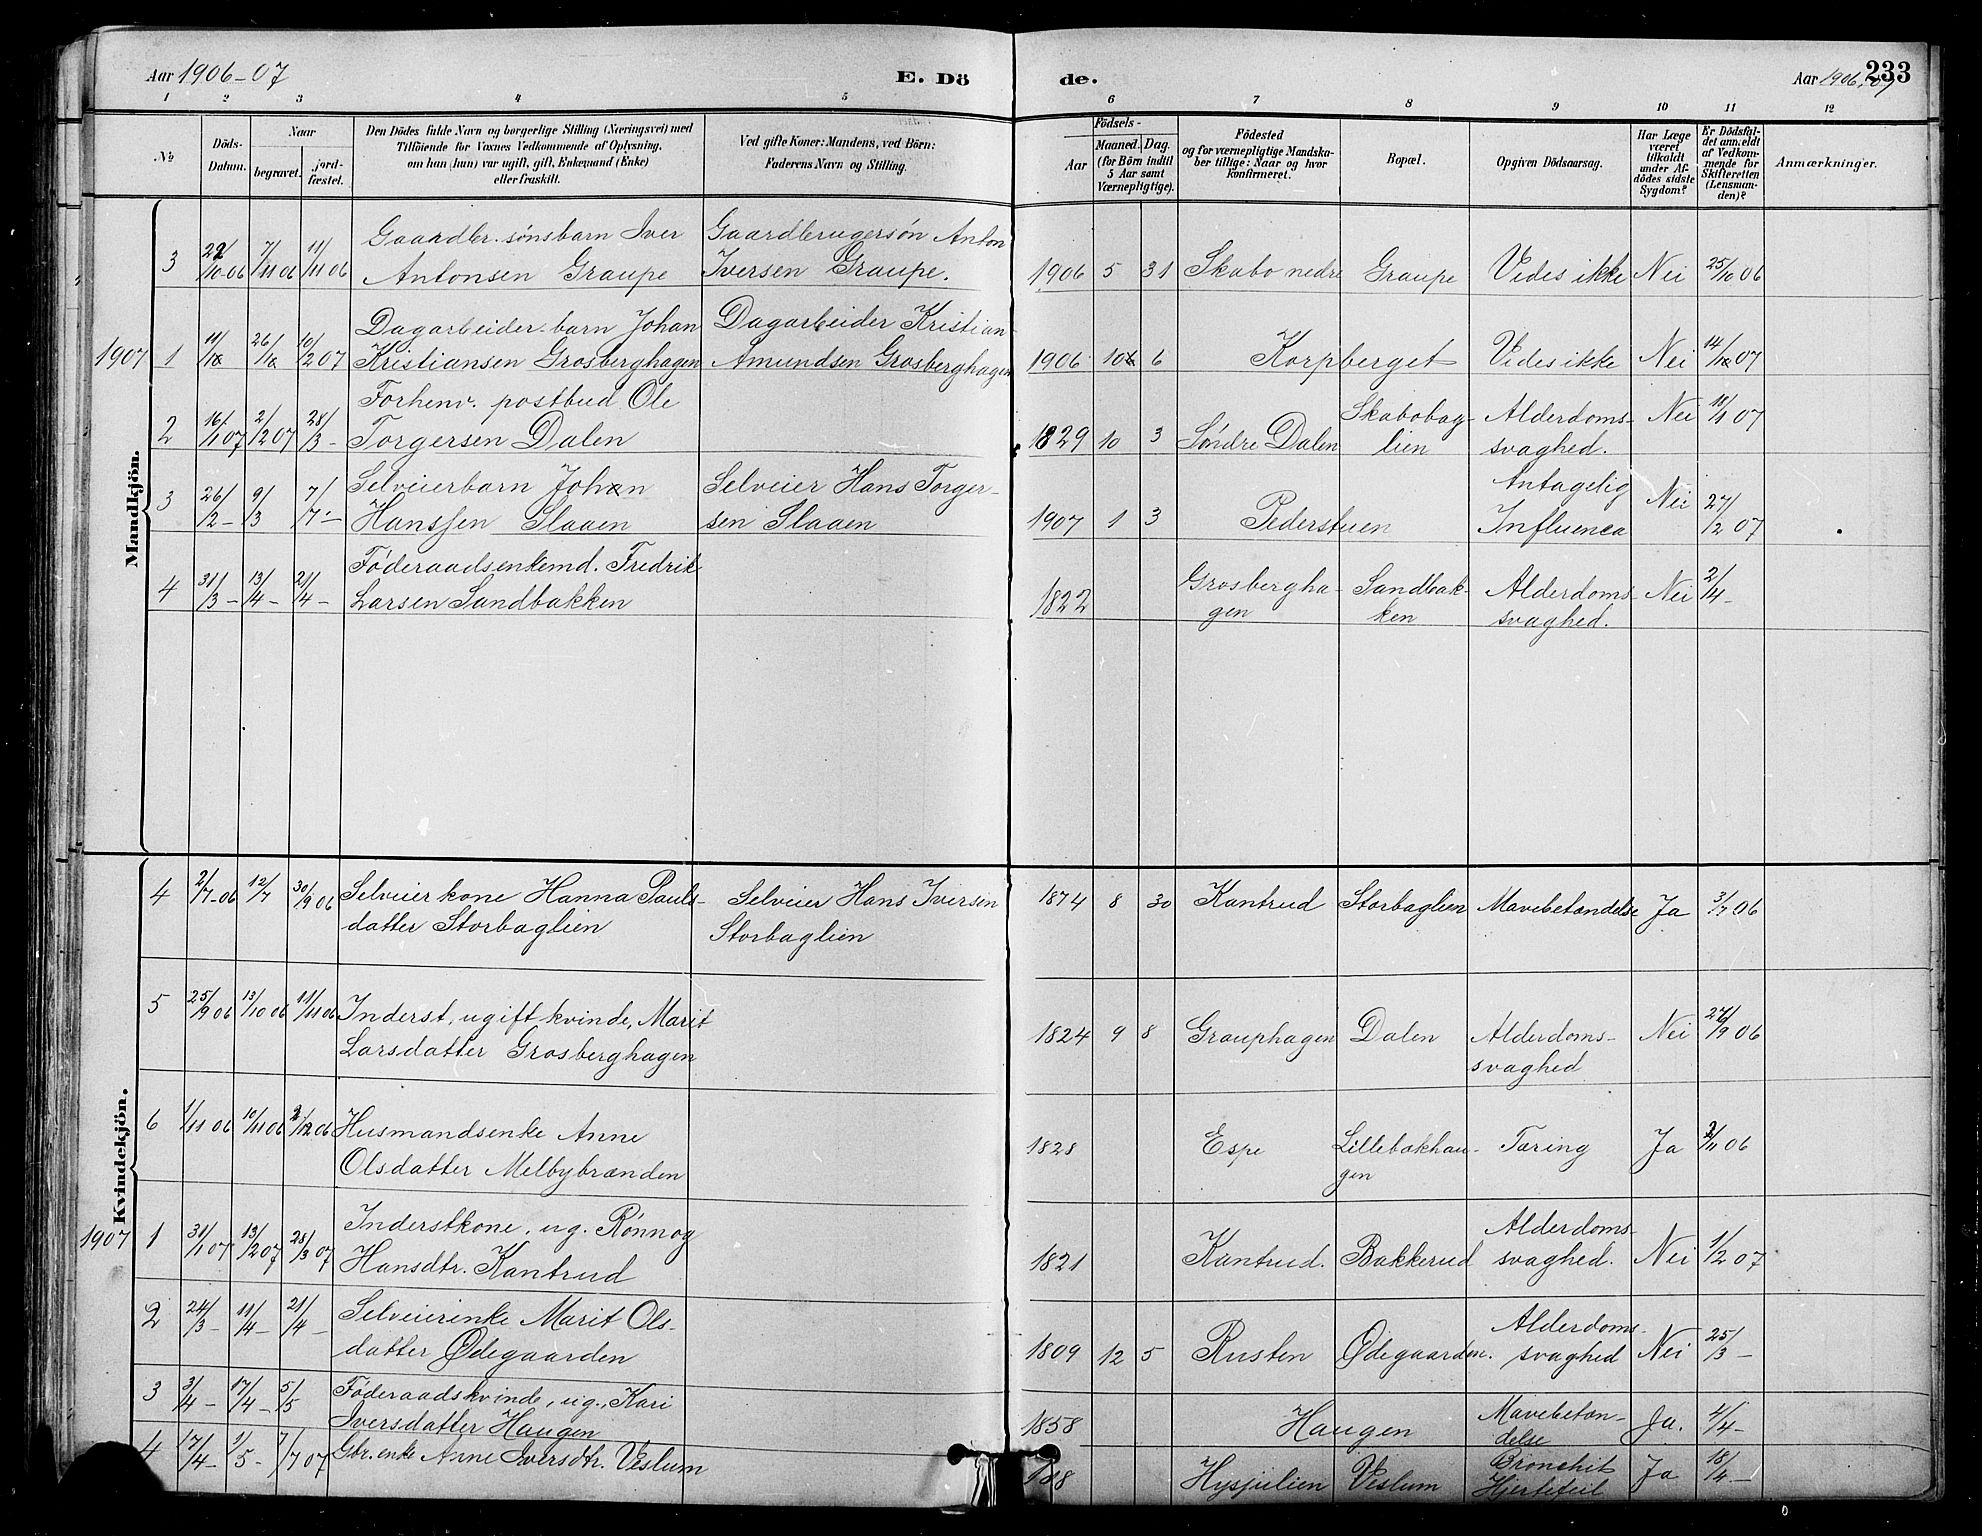 Aar 1906-07
E. Dö
de.
Aar 1906-07
233
1 2 3 4 5 6 7 8 9 10 11 12
№
Döds-Datum.
Naar
begravet.
jordfæstet.
Den Dödes fulde Navn og borgerlige Stilling (Næringsvei) med
Tilföiende for Voxnes Vedkommende af Oplysning,
om han (hun) var ugift, gift, Enkemand (Enke)
eller fraskilt.
Ved gifte Koner: Mandens, ved Börn:
Faderens Navn og Stilling.
Födsels-
Aar
Maaned.
Dag.
(for Börn indtil
5 Aar samt
Værnepligtige).
Födested
og for værnepligtige Mandska-
ber tillige: Naar og hvor
konfirmeret.
Bopæl.
Opgiven Dödsaarsag.
Har Læge
været
tilkaldt
under Af-
dödes sidste
Sygdom?
Er Dödsfal-
det anmeldt
af Vedkom-
mende for
Skifteretten
(Lensman-
den)?
Anmærkninger.
Mandkjön.
3 22/10 06 7/11 06 11/11 06 Gaardbr. sønsbarn Iver Gaardbrugersøn Anton
Antonsen Graupe Iversen Graupe. 1906 5 31 Skabo nedre Graupe Vides ikke Nei 25/10 06
1907
1 26/ 10/2 07 Dagarbeider barn Johan Dagarbeider Kristian
Kristiansen Grosberghagen Amundsen Grosberghagen 1906 10 6 Korpberget Vides ikke Nei 14/ 07
2 16/1 07 2/2 07 28/3 - Forhenv. postbud Ole
Torgersen Dalen 1829 10 3 Søndre Dalen Skabobag-
lien Alderdoms-
svaghed. Nei 18/1 07
3 26/2 - 9/3 7/7 - Selveierbarn Johan Selveier Hans Torger-
Hanssen Slaaen sen Slaaen 1907 1 3 Pederstuen Antagelig
Influenca Nei 27/2 07
4 31/3 - 13/4 - 21/4 - Föderaadsenkemd. Fredrik
Larsen Sandbakken 1822 Grosbergha-
gen Sandbak-
ken Alderdoms-
svaghed. Nei 2/4 -
Kvindekjön.
4 2/7-06 12/7 30/9 06 Selveierkone Hanna Pauls- Selveier Hans Iversen
datter Storbaglien Storbaglien 1874 8 30 Kantrud Storbaglien Mavebetændelse Ja 3/7 06
5 25/9 06 13/10 06 11/11 06 Inderst, ugift kvinde, Marit
Larsdatter Grosberghagen 1824 9 8 Grauphagen Dalen Alderdoms-
svaghed Nei 27/9 06
6 1/11 06 10/11 06 2/12 06 Husmandsenke Anne
Olsdatter Melbybrænden 1828 Espe Lillebakhau-
gen Tæring Ja 2/11 06
1907
1 31/1 07 13/2 07 28/3 07 Inderstkone, ug. Rønnog
Hansdtr. Kantrud 1821 Kantrud. Bakkerud Alderdoms-
svaghed. Nei 1/2 07
2 24/3 - 11/4 - 21/4 - Selveierinke Marit Ols-
datter Ødegaarden 1809 12 5 Rusten Ødegaarden. Alderdoms-
svaghed Nei 25/3 -
3 3/4 - 17/4 - 5/5 Föderaadskvinde, ug., Kari
Iversdatter Haugen 1858 Haugen Mavebetæn-
delse Ja. 4/4 -
4 17/4 - 1/5 - 7/7 07 Gbr. enke Anne Iversdtr. Veslum Hysjulien Veslum Bronchit
Hjertefeil Ja 18/4 -